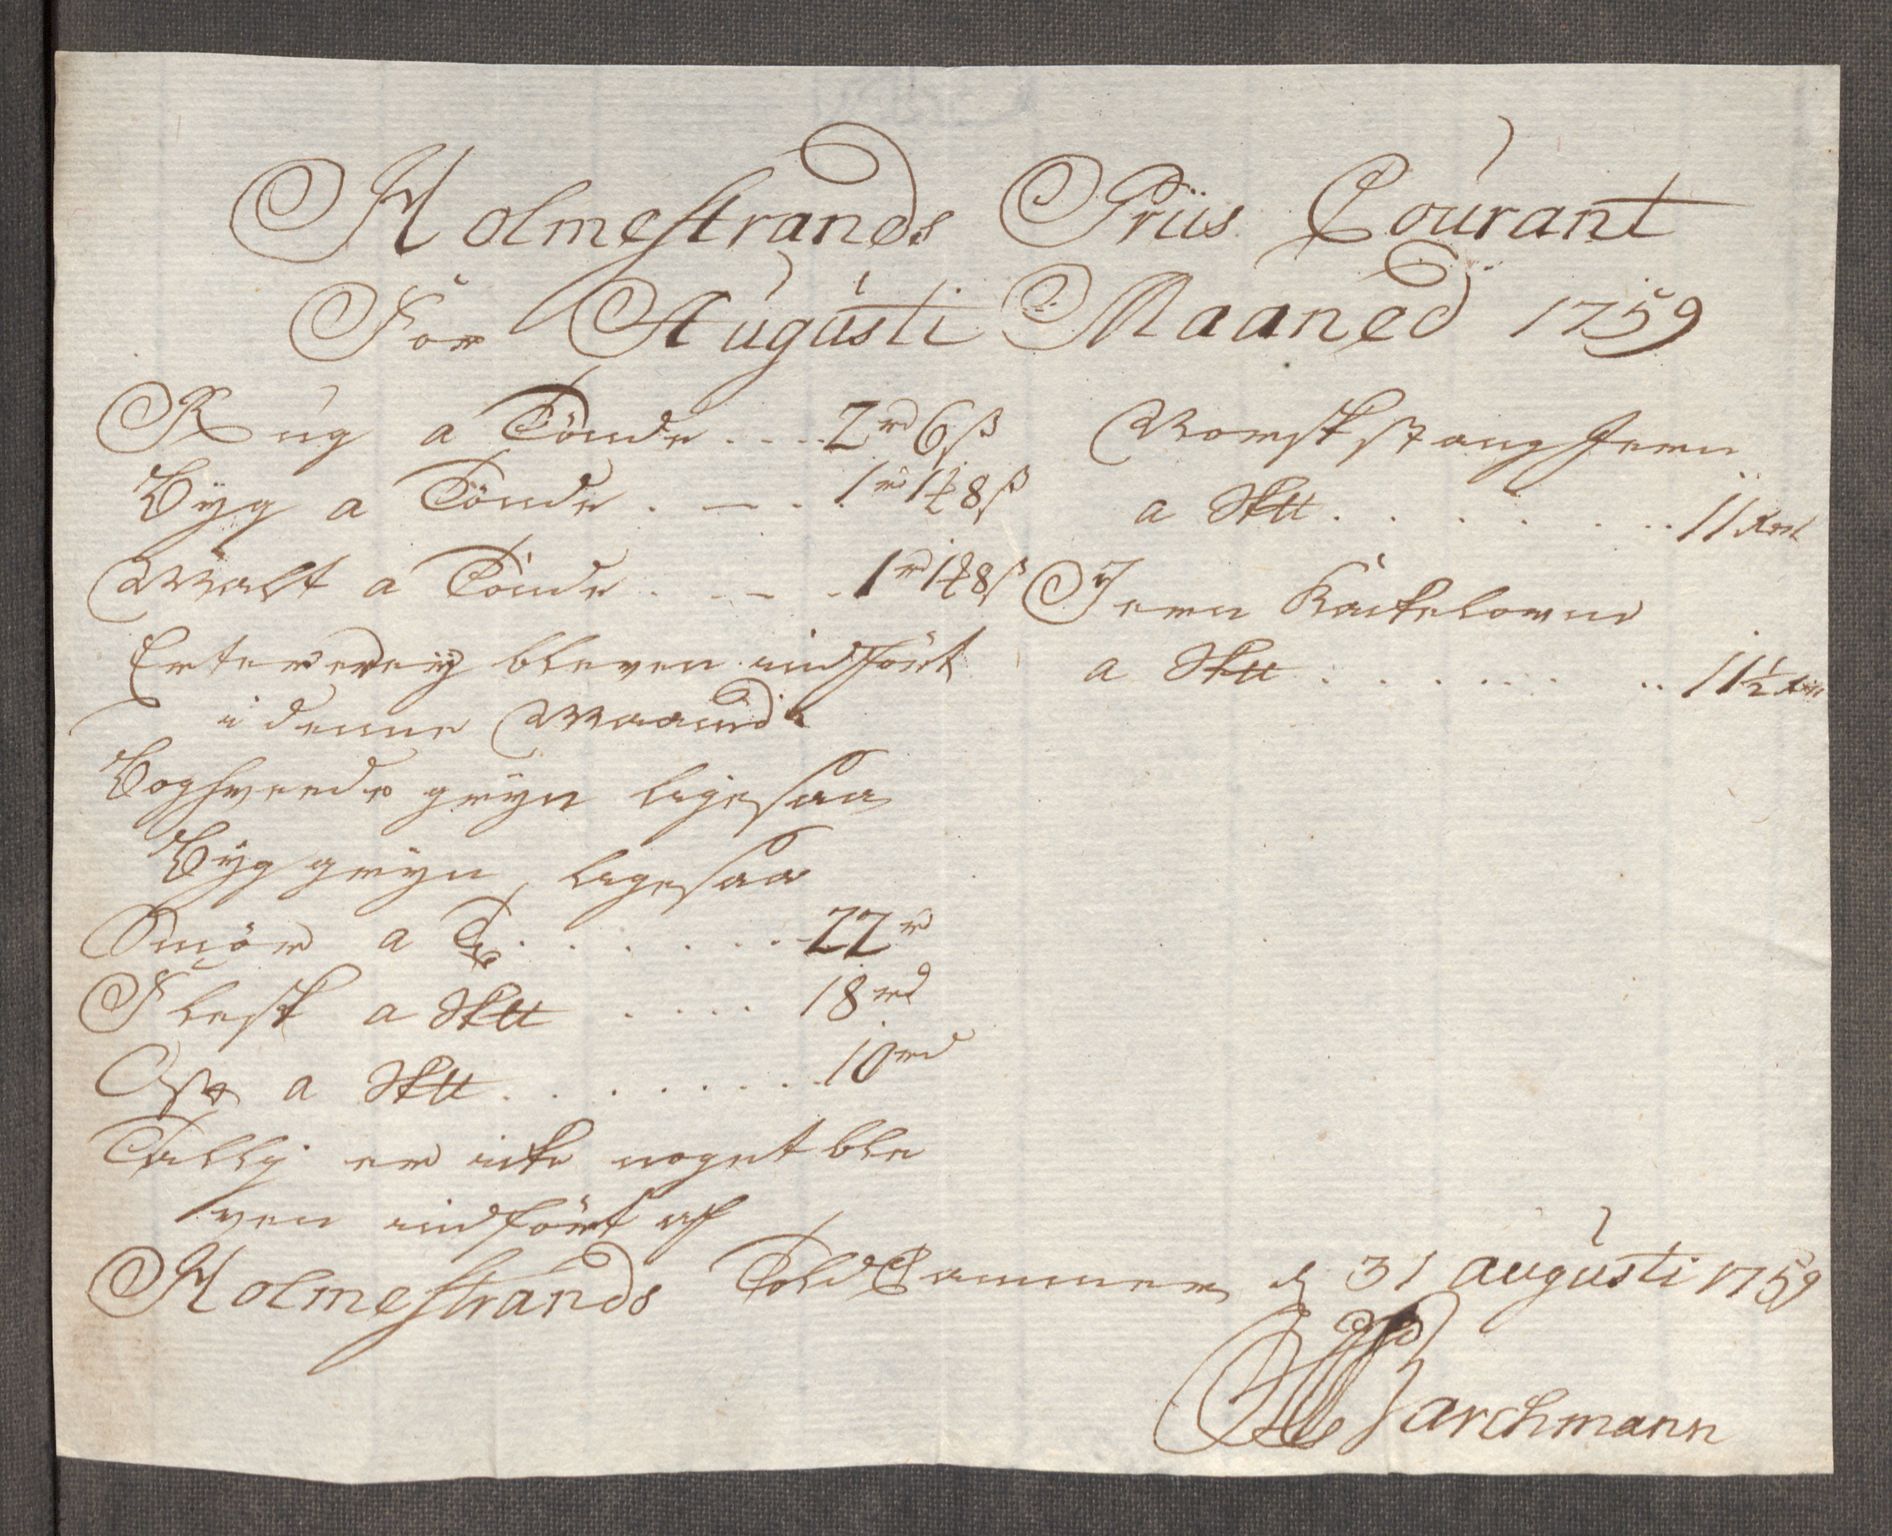 Holmestrands Priis Courant
For Augusti Maaned 1759
Rug a Tönde .... 2 rd 6 ß
Byg a Tönde . — . . 1 rd 48 ß
Malt a Tönde . . — . 1 rd 48 ß
Erter er ej bleven indfört
i denne Maaned
Boghveede gryn ligesaa
Byg gryn ligesaa
Smör a T . . . . . . . 22 r
Flesk a Sktt . . . . 18 rd
Ost a Sktt . . . . . . . 10 rd
Tallig er icke noget ble
ven indfört af
Norsk stang Jern
a Sktt . . . . . . . . 11
Jern Kackelovne
a Sktt . . . . . . . . 11½
Holmestrands Told Cammer d 31 augusti 1759
Barchmann